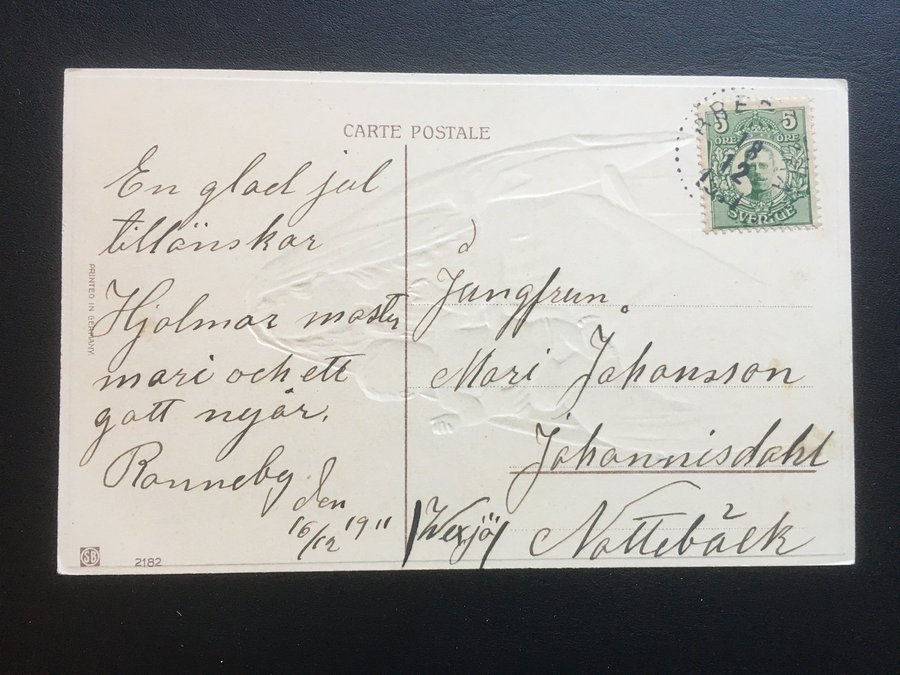 CARTE POSTALE
En glad jul
tillönskar
Hjalmar moster
mari och ett
gott nyår.
Ronneby
den
16/12 1911
PRINTED IN GERMANY.
SB
2182
5 5
ÖRE ÖRE
SVERIGE
Jungfrun
Mari Johansson
Johannisdahl
Nottebäck
/Wexjö/